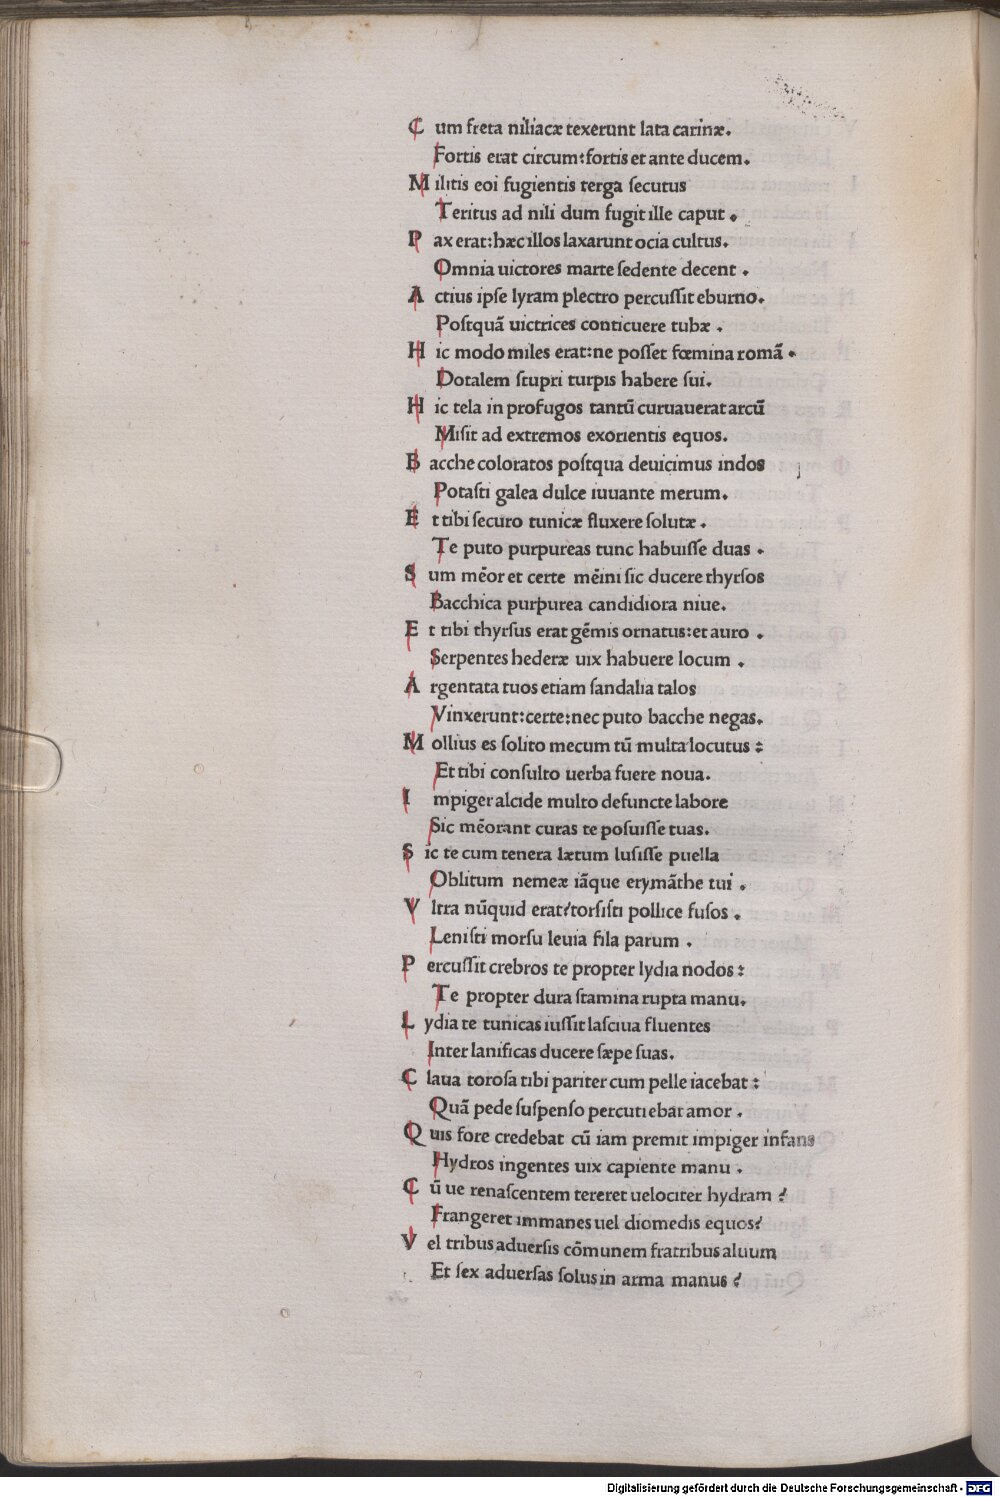 C um freta niliacæ texerunt lata carinæ.
Fortis erat circum:fortis et ante ducem.
M ilitis eoi fugientis terga ſecutus
Teritus ad nili dum fugit ille caput .
P ax erat:hæc illos laxarunt ocia cultus.
Omnia uictores marte ſedente decent .
A ctius ipſe lyram plectro percuſſit eburno.
Poſtquã uictrices conticuere tubæ .
H ic modo miles erat:ne poſſet fœmina romã .
Dotalem ſtupri turpis habere ſui.
H ic tela in profugos tantũ curuauerat arcũ
Miſit ad extremos exorientis equos.
B acche coloratos poſtqua deuicimus indos
Potaſti galea dulce iuuante merum.
E t tibi ſecuro tunicæ fluxere ſolutæ .
Te puto purpureas tunc habuiſſe duas .
S um mẽor et certe mẽini ſic ducere thyrſos
Bacchica purpurea candidiora niue.
E t tibi thyrſus erat gẽmis ornatus:et auro .
Serpentes hederæ uix habuere locum .
A rgentata tuos etiam ſandalia talos
Vinxerunt:certe:nec puto bacche negas.
M ollius es ſolito mecum tũ multa locutus :
Et tibi conſulto uerba fuere noua.
I mpiger alcide multo defuncte labore
Sic mẽorant curas te poſuiſſe tuas.
S ic te cum tenera lætum luſiſſe puella
Oblitum nemeæ iãque erymãthe tui .
V ltra nũquid erat?torſiſti pollice fuſos .
Leniſti morſu leuia fila parum .
P ercuſſit crebros te propter lydia nodos :
Te propter dura ſtamina rupta manu.
L ydia te tunicas iuſſit laſciua fluentes
Inter lanificas ducere ſæpe ſuas.
C laua toroſa tibi pariter cum pelle iacebat :
Quã pede ſuſpenſo percutiebat amor .
Q uis fore credebat cũ iam premit impiger infans
Hydros ingentes uix capiente manu .
C ũ ue renaſcentem tereret uelociter hydram ?
Frangeret immanes uel diomedis equos?
V el tribus aduerſis cõmunem fratribus aluum
Et ſex aduerſas ſolus in arma manus ?
Digitalisierung gefördert durch die Deutsche Forschungsgemeinschaft - DFG